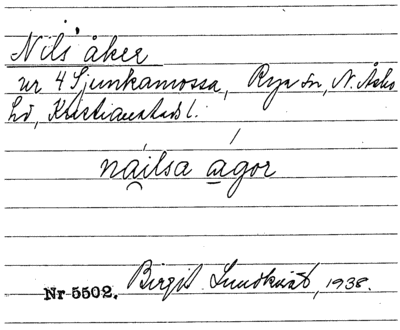 Nils' åker
ur 4 Sjunkamossa, Rya sn, N. Åsbo
hd, Kristianstads l.
nailsa agor
Nr 5502. Birgit Lundkvist, 1938.